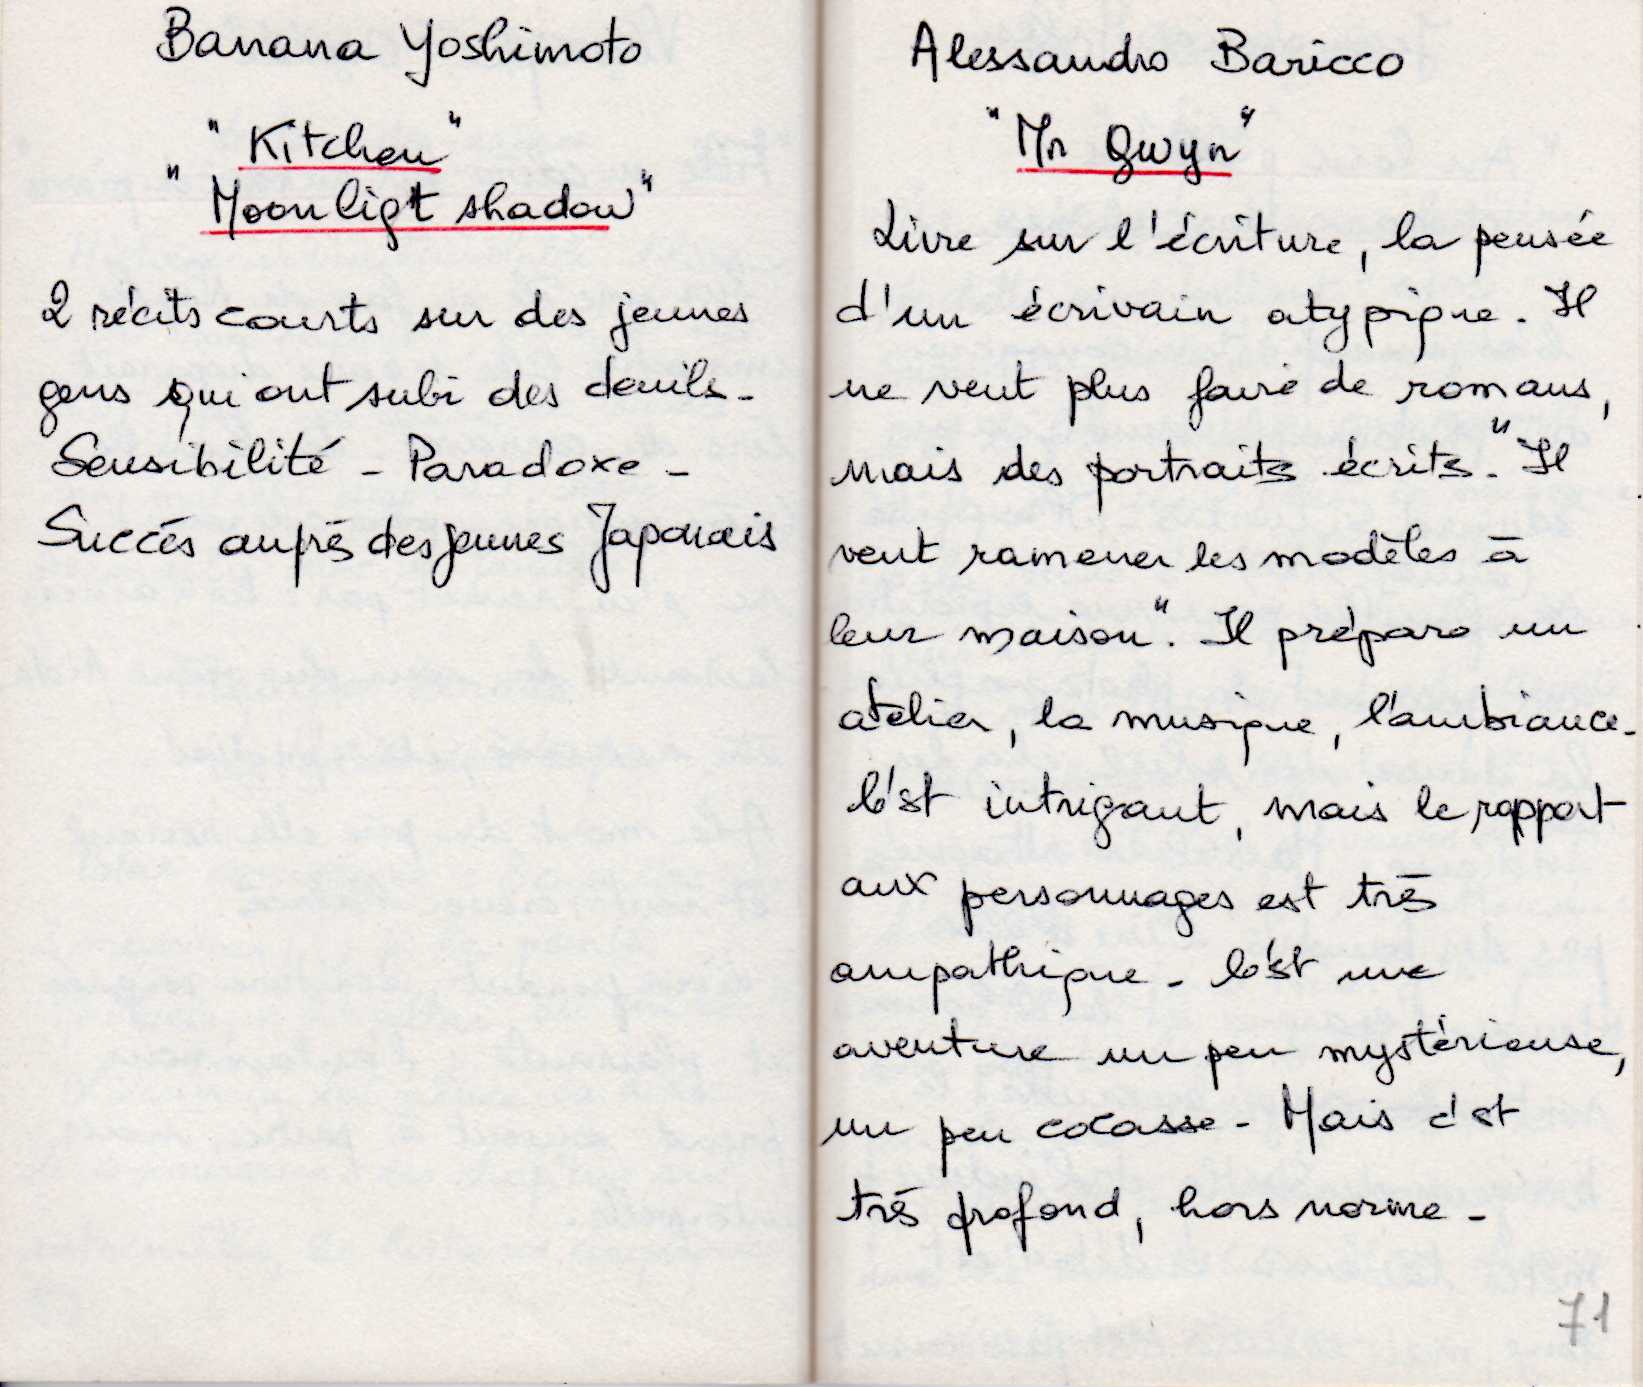 Banana Yoshimoto
"Kitchen"
"Moonligt shadow"
2 récits courts sur des jeunes
gens qui ont subi des deuils.
Sensibilité - Paradoxe -
Succés auprès des jeunes Japonais
Alessandro Baricco
"Mr Gwyn"
Livre sur l'écriture, la pensée
d'un écrivain atypique. Il
ne veut plus faire de romans,
mais des portraits écrits. "Il
veut ramener les modèles à
leur maison". Il prépare un
atelier, la musique, l'ambiance.
C'est intrigant, mais le rapport
aux personnages est très
empathique - C'est une
aventure un peu mystérieuse,
un peu cocasse - Mais c'est
très profond, hors norme -
71